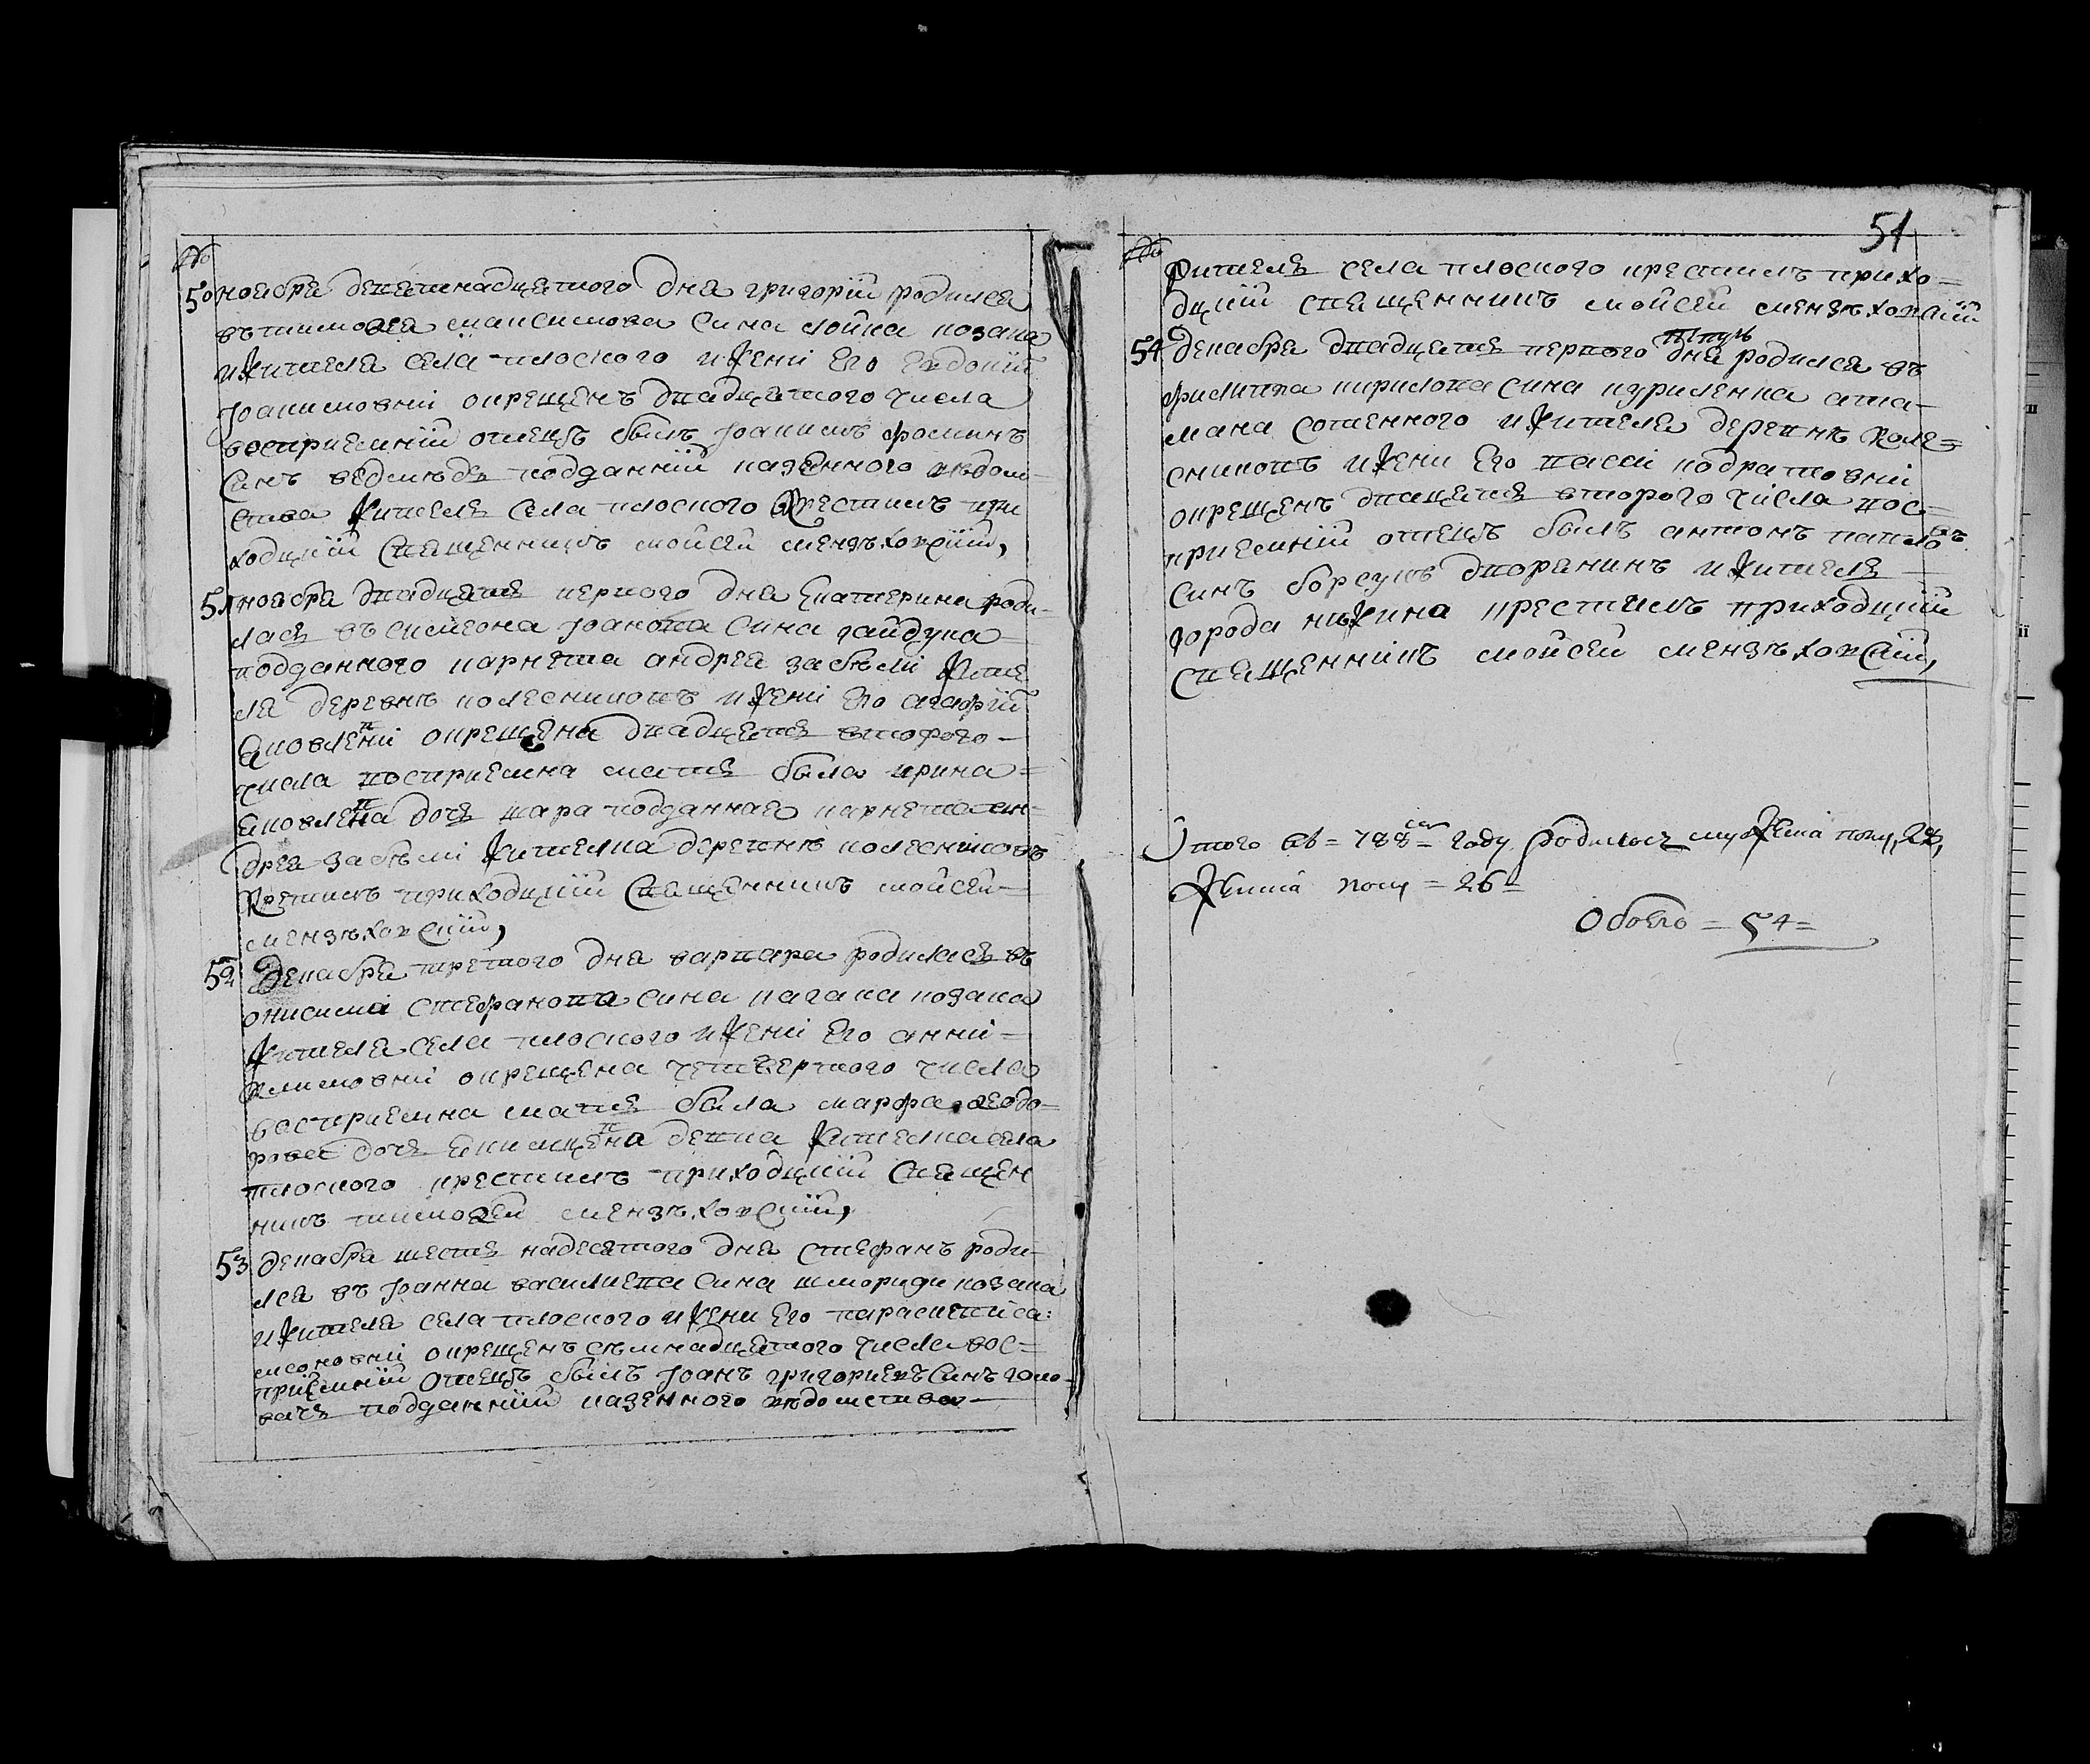 №
50 ноабря девятнадцятого дня григорій родился
въ тимоѳея максимова сина лойка козака
и жителя села плоского и жени его евдокіи
Іоакимовни окрещенъ двадцятого числа
восприемній отецъ былъ Іоакимъ фоминъ
синъ ведмѣдь подданній казенного вѣдом-
ства житель села плоского крестилъ при
ходцкій священникъ мойсей мензѣховскій,
51 ноабря двадцять первого дня Екатерина роди-
лась въ симеона Іоанова сина гайдука
подданного корнета андрея забѣли жите
ля деревнѣ колесниковъ и жени его агафіи
яковлевни окрещена двадцять второго -
числа восприемна мать была ирина =
яковлевна дочь подданнаго корнета ан-
дрея забѣли жителка деревнѣ колесниковъ
крестилъ приходцкій священникъ мойсей -
мензѣховскій,
52 декабря третого дня варвара родилась въ
онисима стефанова сина козака
жителя села плоского и жени его анни =
климовни окрещена четвертого числа
восприемна мать была марфа ѳеодо=
рова дочь жителка села
плоского крестилъ приходцкій священ
никъ тимоѳей мензѣховскій,
53 декабря шесть надесятого дня стефанъ роди-
лся въ Іоанна василиева сина козака
и жителя села плоского и жени его параскевіи са:
мсоновни окрещенъ сѣмнадцятого числа вос=
пріемній отецъ былъ Іоанъ григориевъ синъ голо-
вачь подданній казенного вѣдомства -
51
№
житель села плоского крестилъ прихо=
дцкій священникъ мойсей мензѣховскій
54 декабря двадцять первого дня родился въ
филиппа кирилова сина куриленка ата-
мана сотенного и жителя деревнѣ коле=
сниковъ и жени его васси кодратовни
окрещенъ двацять второго числа вос=
приемній отецъ былъ антонъ павловъ
синъ борсукъ дворянинъ и житель -
города нѣжина крестилъ приходцкій
священникъ мойсей мензѣховскій,
Итого въ = 788 = году родилось мужеска полу, 28,
Женска полу = 26 =
Обоего = 54 =